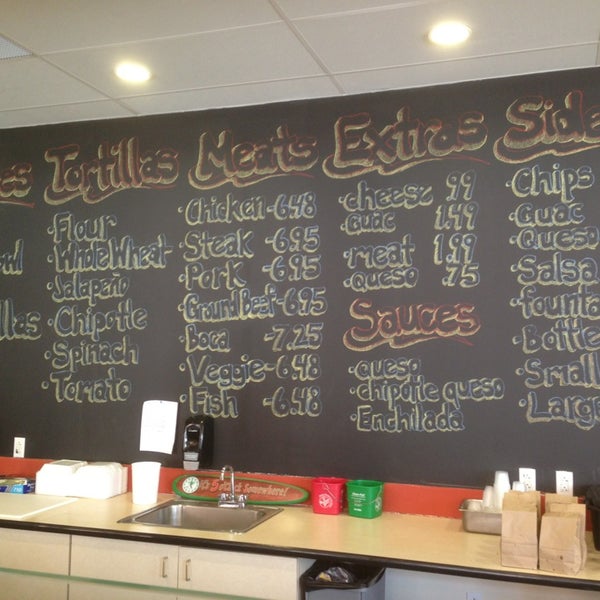 es
wl
llas
Tortillas
·Flour
·Whole Wheat
·Jalapeño
·Chipotle
·Spinach
·Tomato
Meats
·Chicken-6.48
·Steak -6.95
·Pork -6.95
·Ground Beef-6.95
·Boca -7.25
·Veggie-6.48
·Fish -6.48
Extras
·cheese .99
·Guac 1.49
·meat 1.99
·Queso .75
Sauces
·queso
·chipotle queso
·Enchilada
Side
·Chips
·Guac
·Queso
·Salsa
·founta
·Bottle
·Small
·Large
It's 5 o'clock Somewhere!